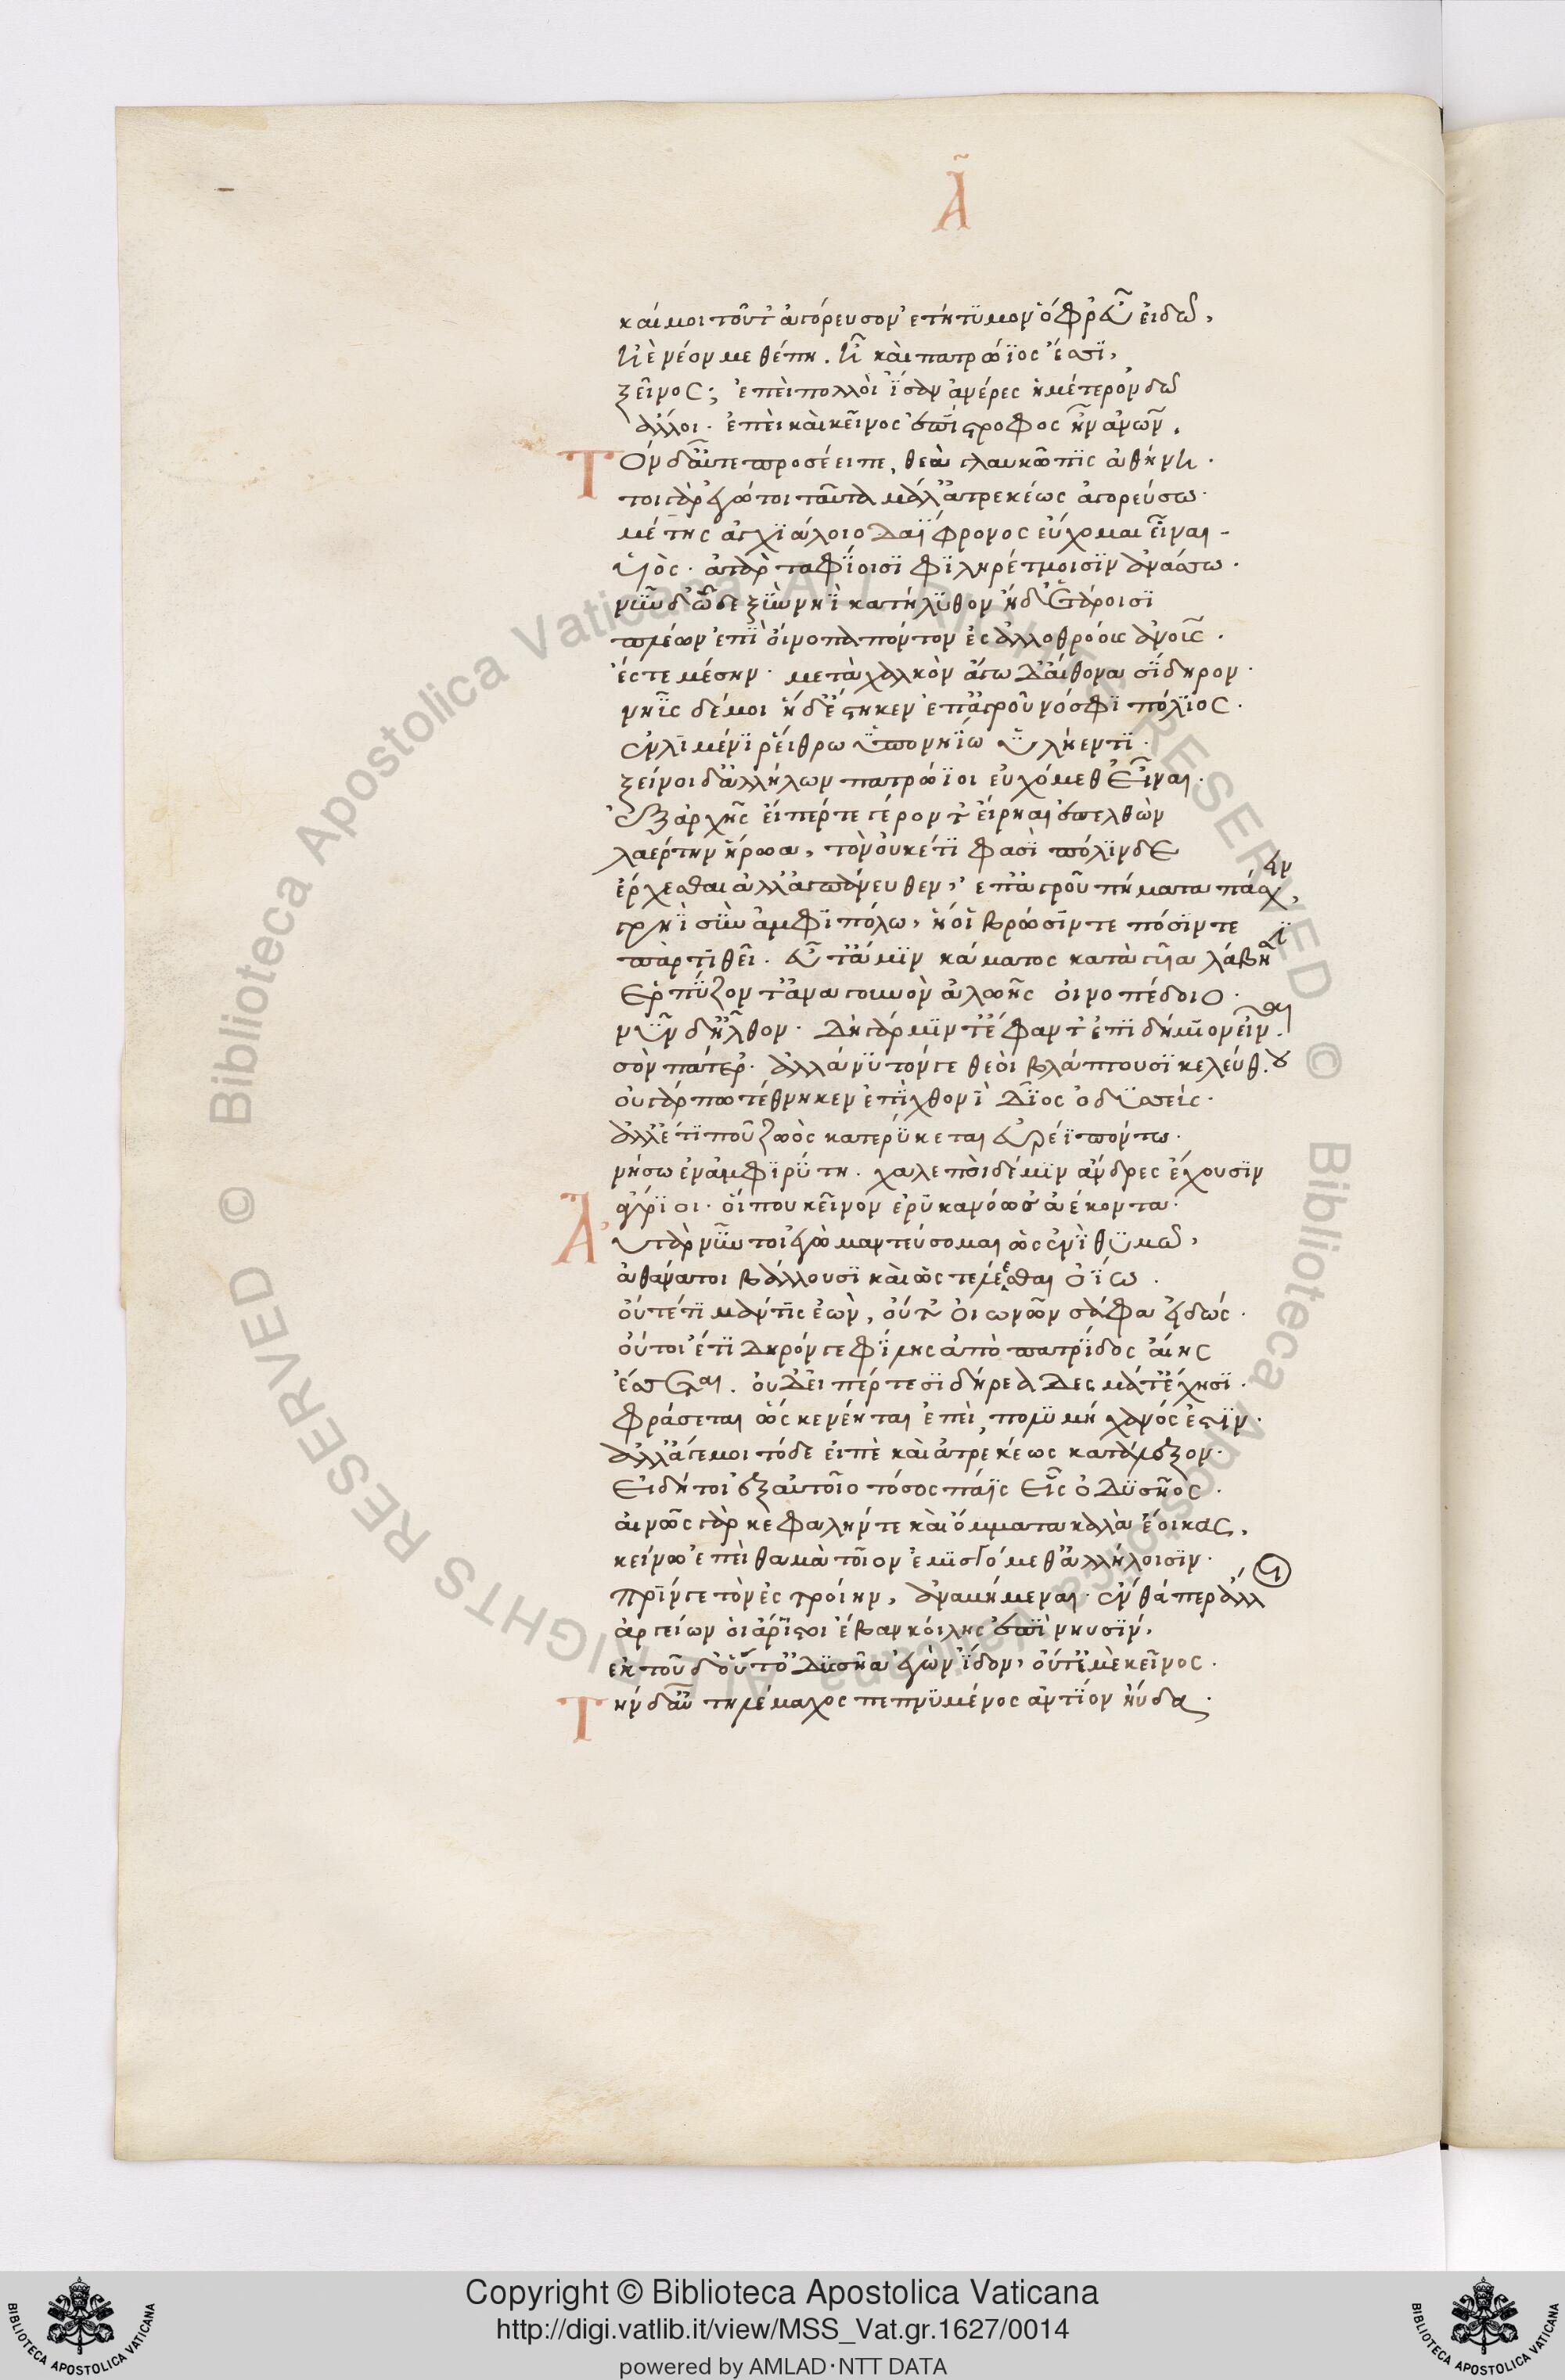 Α
καί μοι τοῦτ' ἀγόρευσον ἐτήτυμον ὄφρ' εὖ εἰδῶ,
ἠὲ νέον μεθέπῃ. ἦ καὶ πατρώϊος ἐσσὶ,
ξεῖνος; ἐπεὶ πολλοὶ ἴσαν ἀνέρες ἡμέτερον δῶ
ἄλλοι. ἐπεὶ καὶ κεῖνος ἐπίστροφος ἦν ἀνθρώπων.
Τὸν δ' αὖτε προσέειπε, θεὰ γλαυκῶπις ἀθήνη.
τοιγὰρ ἐγώ τοι ταῦτα μάλ' ἀτρεκέως ἀγορεύσω.
μέντης ἀγχιάλοιο δαΐφρονος εὔχομαι εἶναι
υἱὸς. ἀτὰρ ταφίοισι φιληρέτμοισιν ἀνάσσω.
νῦν δ' ὧδε ξὺν νηῒ κατήλυθον ἠδ' ἑτάροισι
πλέων ἐπὶ οἴνοπα πόντον ἐς ἀλλοθρόους ἀνθρώπους.
ἐς τεμέσην. μετὰ χαλκὸν ἄγω δ' αἴθονα σίδηρον.
νηῦς δέ μοι ἥδ' ἕστηκεν ἐπ' ἀγροῦ νόσφι πόλιος.
ἐν λιμένι ῥείθρω ὑπονηΐω ὑλήεντι.
ξεῖνοι δ' ἀλλήλων πατρώϊοι εὐχόμεθ' εἶναι.
ἐξ ἀρχῆς εἴπερ τε γέροντ' εἴρηαι ἐπελθὼν
λαέρτην ἥρωα, τὸν οὐκέτι φασὶ πόλινδε
ἔρχεσθαι ἀλλ' ἀπάνευθεν, ἐπ' ἀγροῦ πήματα πάσχειν,
γρηῒ σὺν ἀμφιπόλω, ἥ οἱ βρῶσίν τε πόσιν τε
παρτιθεῖ. εὖτ' ἄν μιν κάματος κατὰ γυῖα λάβησι
ἑρπύζοντ' ἀνὰ γουνὸν ἀλωῆς οἰνοπέδοιο.
νῦν δ' ἦλθον. δὴ γάρ μιν τ' ἔφαντ' ἐπιδήμιον εἶναι.
σὸν πατέρ'. ἀλλά νυ τόν γε θεοὶ βλάπτουσι κελεύθου.
οὐ γάρ πω τέθνηκεν ἐπὶ χθονὶ δῖος ὀδυσσεύς.
ἀλλ' ἔτι που ζωὸς κατερύκεται εὐρέϊ πόντω.
νήσω ἐν ἀμφιρύτη. χαλεποὶ δέ μιν ἄνδρες ἔχουσιν
ἄγριοι. οἵ που κεῖνον ἐρυκανόωσ' ἀέκοντα.
Αὐτὰρ νῦν τοι ἐγὼ μαντεύσομαι ὡς ἐνὶ θυμῶ,
ἀθάνατοι βάλλουσι καὶ ὡς τελέεσθαι ὀΐω.
οὔτέ τι μάντις ἐὼν, οὔτ' οἰωνῶν σάφα εἰδώς.
οὔτοι ἔτι δηρόν γε φίλης ἀπὸ πατρίδος αἴης
ἔσσεται. οὐδ' εἴπερ τε σιδήρεα δέσματ' ἔχησι.
φράσεται ὥς κε νέηται ἐπεὶ, πολυμήχανός ἐστιν.
ἀλλ' ἄγε μοι τόδε εἰπὲ καὶ ἀτρεκέως κατάλεξον.
εἰ δή τοι ἐξ αὐτοῖο τόσος πάϊς εἶς ὀδυσῆος.
αἰνῶς γὰρ κεφαλήν τε καὶ ὄμματα καλὰ ἔοικας,
κείνω ἐπεὶ θαμὰ τοῖον ἐμισγόμεθ' ἀλλήλοισιν.
πρίν γε τὸν ἐς τροίην, ἀναβήμεναι. ἔνθά περ ἄλλοι
ἀργείων οἱ ἄριστοι ἔβαν κοίλης ἐπὶ νηυσίν,
ἐκ τοῦ δ' οὔτ' ὀδυσῆα ἐγὼν ἴδον, οὔτ' ἐμὲ κεῖνος.
Τὴν δ' αὖ τηλέμαχος πεπνυμένος ἀντίον ηὔδα.
Copyright © Biblioteca Apostolica Vaticana
http://digi.vatlib.it/view/MSS_Vat.gr.1627/0014
powered by AMLAD·NTT DATA